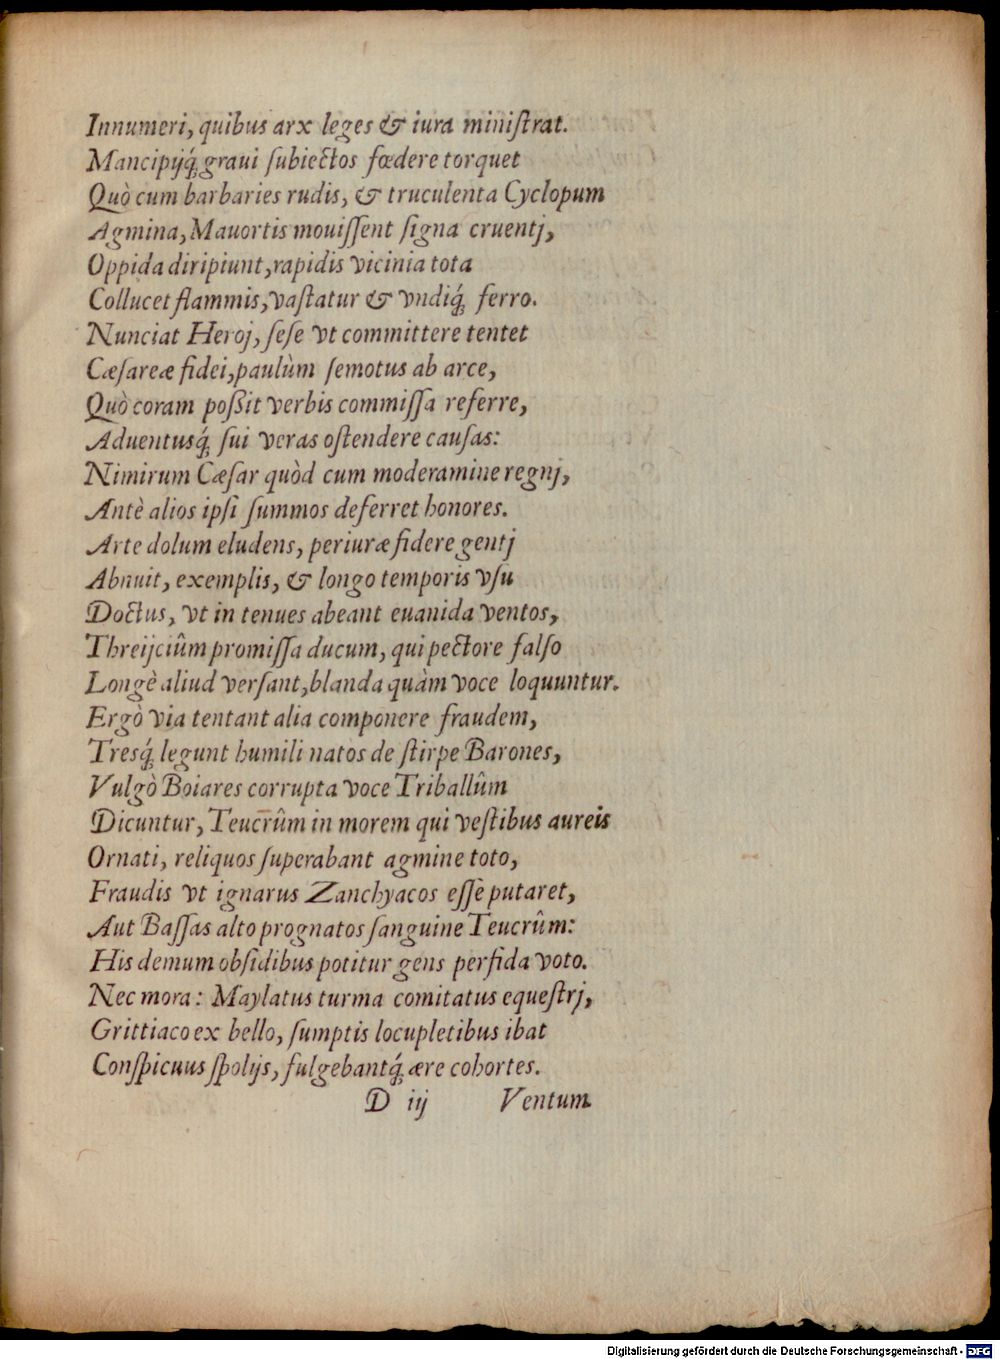 Innumeri, quibus arx leges & iura miniſtrat.
Mancipijq́; graui ſubiectos fœdere torquet
Quò cum barbaries rudis, & truculenta Cyclopum
Agmina, Mauortis mouiſſent ſigna cruentj,
Oppida diripiunt, rapidis vicinia tota
Collucet flammis, vaſtatur & vndiq́; ferro.
Nunciat Heroj, ſeſe vt committere tentet
Cæſareæ fidei, paulùm ſemotus ab arce,
Quò coram poßit verbis commiſſa referre,
Aduentusq́; ſui veras oſtendere cauſas:
Nimirum Cæſar quòd cum moderamine regnj,
Antè alios ipſi ſummos deferret honores.
Arte dolum eludens, periuræ fidere gentj
Abnuit, exemplis, & longo temporis vſu
Doctus, vt in tenues abeant euanida ventos,
Threijciûm promiſſa ducum, qui pectore falſo
Longè aliud verſant, blanda quàm voce loquuntur.
Ergò via tentant alia componere fraudem,
Tresq́; legunt humili natos de ſtirpe Barones,
Vulgò Boiares corrupta voce Triballûm
Dicuntur, Teucrûm in morem qui veſtibus aureis
Ornati, reliquos ſuperabant agmine toto,
Fraudis vt ignarus Zanchyacos eſſe putaret,
Aut Baſſas alto prognatos ſanguine Teucrûm:
His demum obſidibus potitur gens perfida voto.
Nec mora: Maylatus turma comitatus equeſtrj,
Grittiaco ex bello, ſumptis locupletibus ibat
Conſpicuus ſpolijs, fulgebantq́; ære cohortes.
D iij Ventum
Digitalisierung gefördert durch die Deutsche Forschungsgemeinschaft - DFG